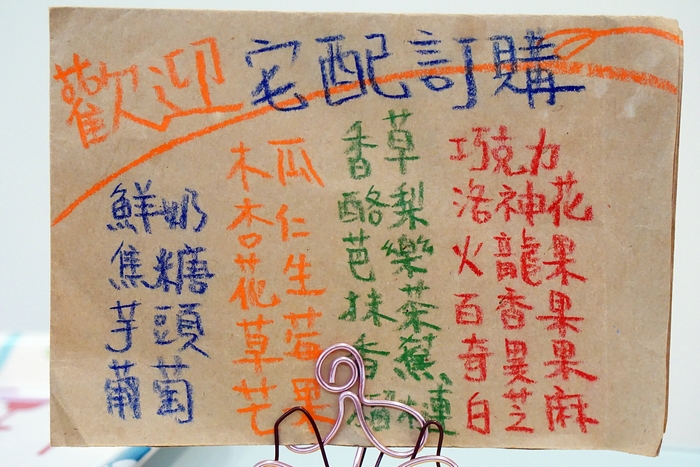 歡迎宅配訂購
鮮奶
焦糖
芋頭
葡萄
木瓜
杏仁
花生
草莓
芒果
香草
酪梨
芭樂
抹茶
香蕉
榴槤
巧克力
洛神花
火龍果
百香果
奇異果
白芝麻